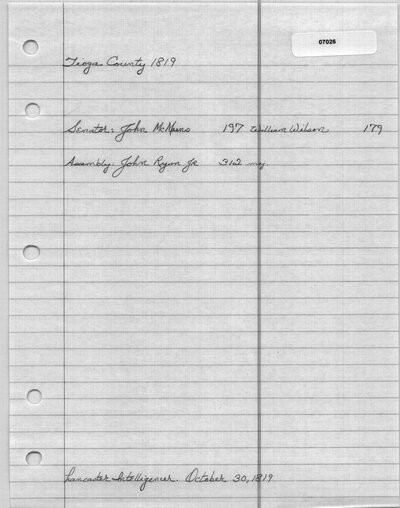 07026
Tioga County 1819
Senator: John McMeens 197 William Wilson 179
Assembly: John Ryon Jr 312 maj.
Lancaster Intelligencer. October 30, 1819